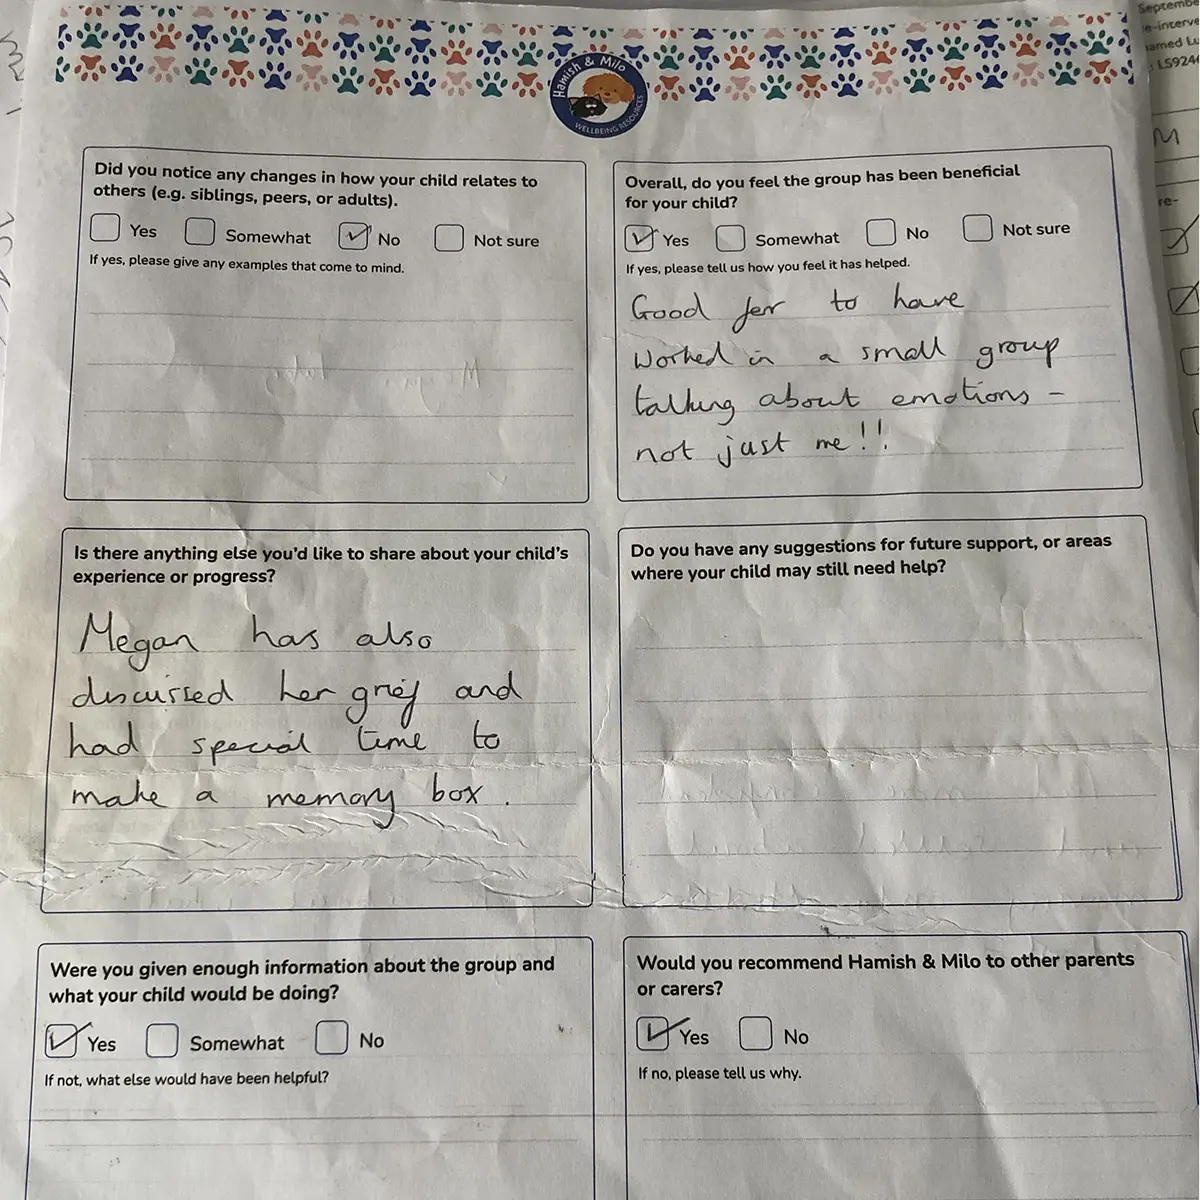 Hamish & Milo
WELLBEING RESOURCES
Did you notice any changes in how your child relates to
others (e.g. siblings, peers, or adults).
Yes Somewhat No Not sure
If yes, please give any examples that come to mind.
Overall, do you feel the group has been beneficial
for your child?
Yes Somewhat No Not sure
If yes, please tell us how you feel it has helped.
Good for to have
worked in a small group
talking about emotions -
not just me!!
Is there anything else you'd like to share about your child's
experience or progress?
Megan has also
discussed her grief and
had special time to
make a memory box.
Do you have any suggestions for future support, or areas
where your child may still need help?
Were you given enough information about the group and
what your child would be doing?
Yes Somewhat No
If not, what else would have been helpful?
Would you recommend Hamish & Milo to other parents
or carers?
Yes No
If no, please tell us why.